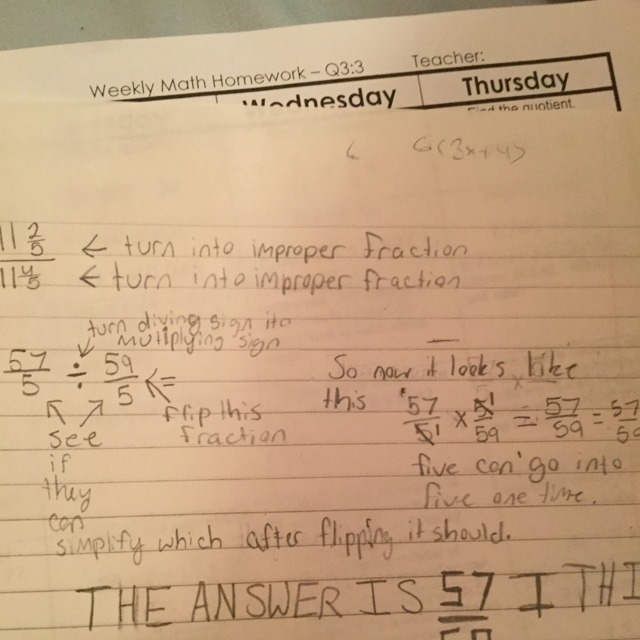 Weekly Math Homework – Q3:3 Teacher:
Wednesday Thursday
Find the quotient.
6 6(3x+4)
11 2/5 ← turn into improper fraction
11 4/5 ← turn into improper fraction
turn diving sign ito
multiplying sign
57/5 ÷ 59/5 =
flip this
fraction
see
if
they
can
simplify which after flipping it should.
So now it looks like
this 57/5 1 x 5 1/59 = 57/59 = 57/59
five can go into
five one time.
THE ANSWER IS 57/59 I THI